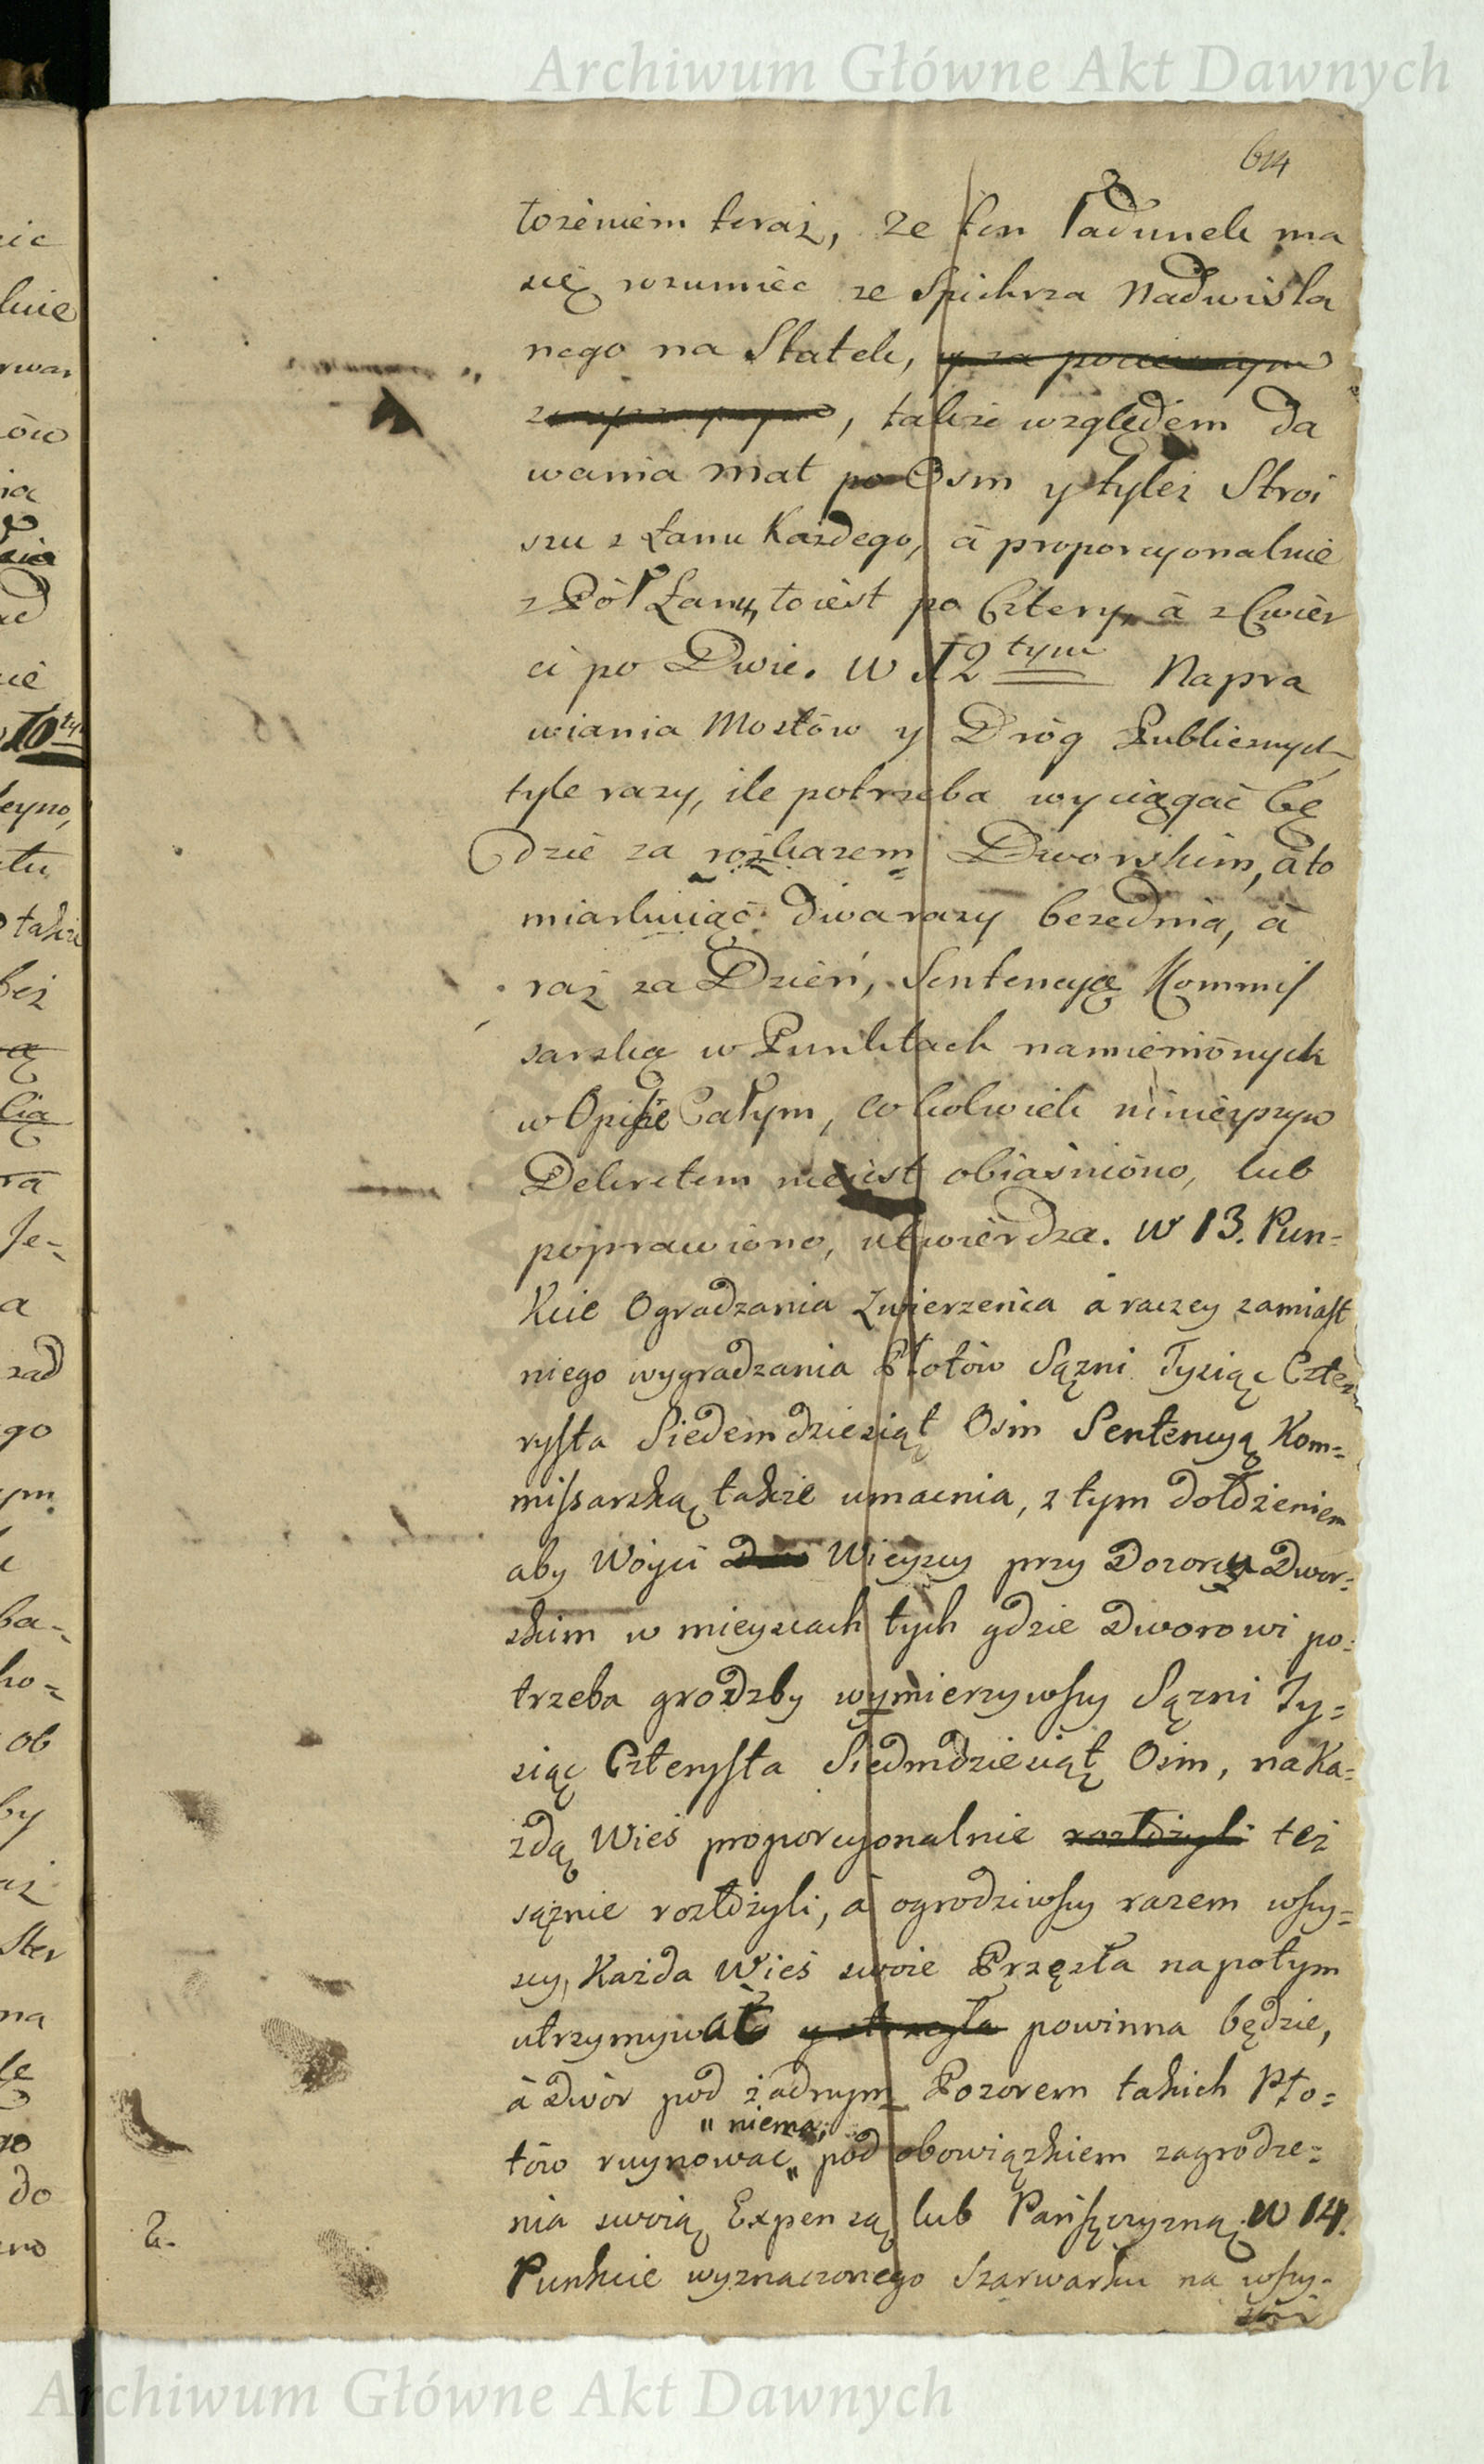 Archiwum Główne Akt Dawnych
614
łożeniem teraz, że ten ładunek ma
się rozumieć ze Spichrza Nadwisla
nego na Statek,
, także względem da
wania mat po Osm y tyleż Stroi
szu z Łanu Każdego, à proporcyonalnie
z Pół Łanu, toiest po Cztery, à z Cwier
ci po Dwie. W 12 tym Napra
wiania Mostów y Dróg Publicznych
tyle razy, ile potrzeba wyciągać bę
dzie za rozkazem Dworskim, à to
miarkuiąc dwa razy bezednia, à
raz za Dzień, Sentencyą Kommis
sarską w Punktach namienionych
w Opisie Całym, co kolwiek ninieyszym
Dekretem nie iest obiaśniono, lub
poprawiono, utwierdza. W 13. Pun=
kcie Ogradzania Zwierzeńca à raczey zamiast
niego wygradzania Płotów Sązni Tysiąc Czte
rysta Siedemdziesiąt Osm Sentencyą Kom=
missarską także umacnia, z tym dołożeniem
aby Wóyci Wieyscy przy Dozorcy Dwor=
skim w mieyscach tych gdzie Dworowi po=
trzeba grodzby wymierzywszy Sązni Ty=
siąc Czterysta Siedmdziesiąt Osm, na Ka=
żdą Wieś proporcyonalnie rozłożyli też
sążnie rozłożyli, à ogrodziwszy razem wszy=
scy, Każda Wieś swoie Przęsła napotym
utrzymywać powinna będzie,
à Dwór pod żadnym Pozorem takich Pło=
" niema,
tów ruynować " pod obowiązkiem zagrodze=
nia swoią Expensą lub Pańszczyzną. W 14.
2.
Punkcie wyznaczonego Szarwarku na wszy=
Archiwum Główne Akt Dawnych